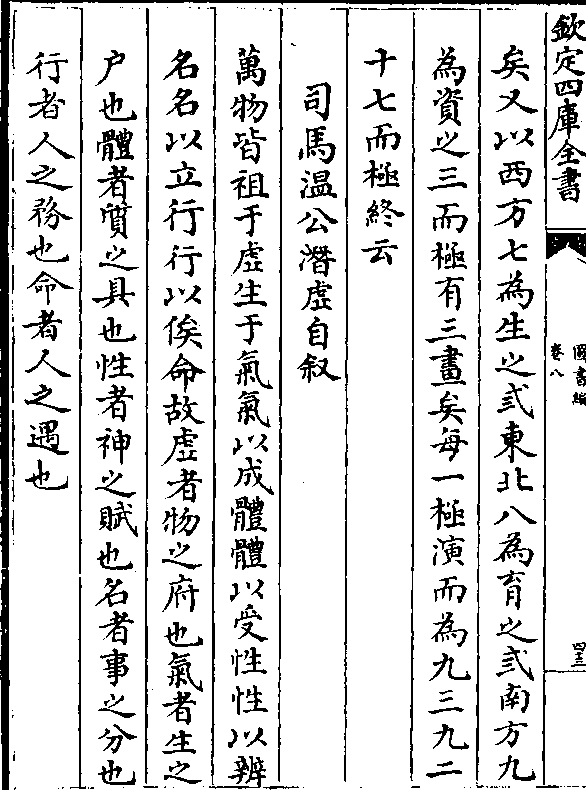 欽定四庫全書
圖書編
卷八
四三
矣又以西方七為生之弍東北八為育之弎南方九
為資之三而極有三畫矣每一極演而為九三九二
十七而極終云
司馬温公潛虛自叙
萬物皆祖于虛生于氣氣以成體體以受性性以辨
名名以立行行以俟命故虛者物之府也氣者生之
户也體者質之具也性者神之賦也名者事之分也
行者人之務也命者人之遇也